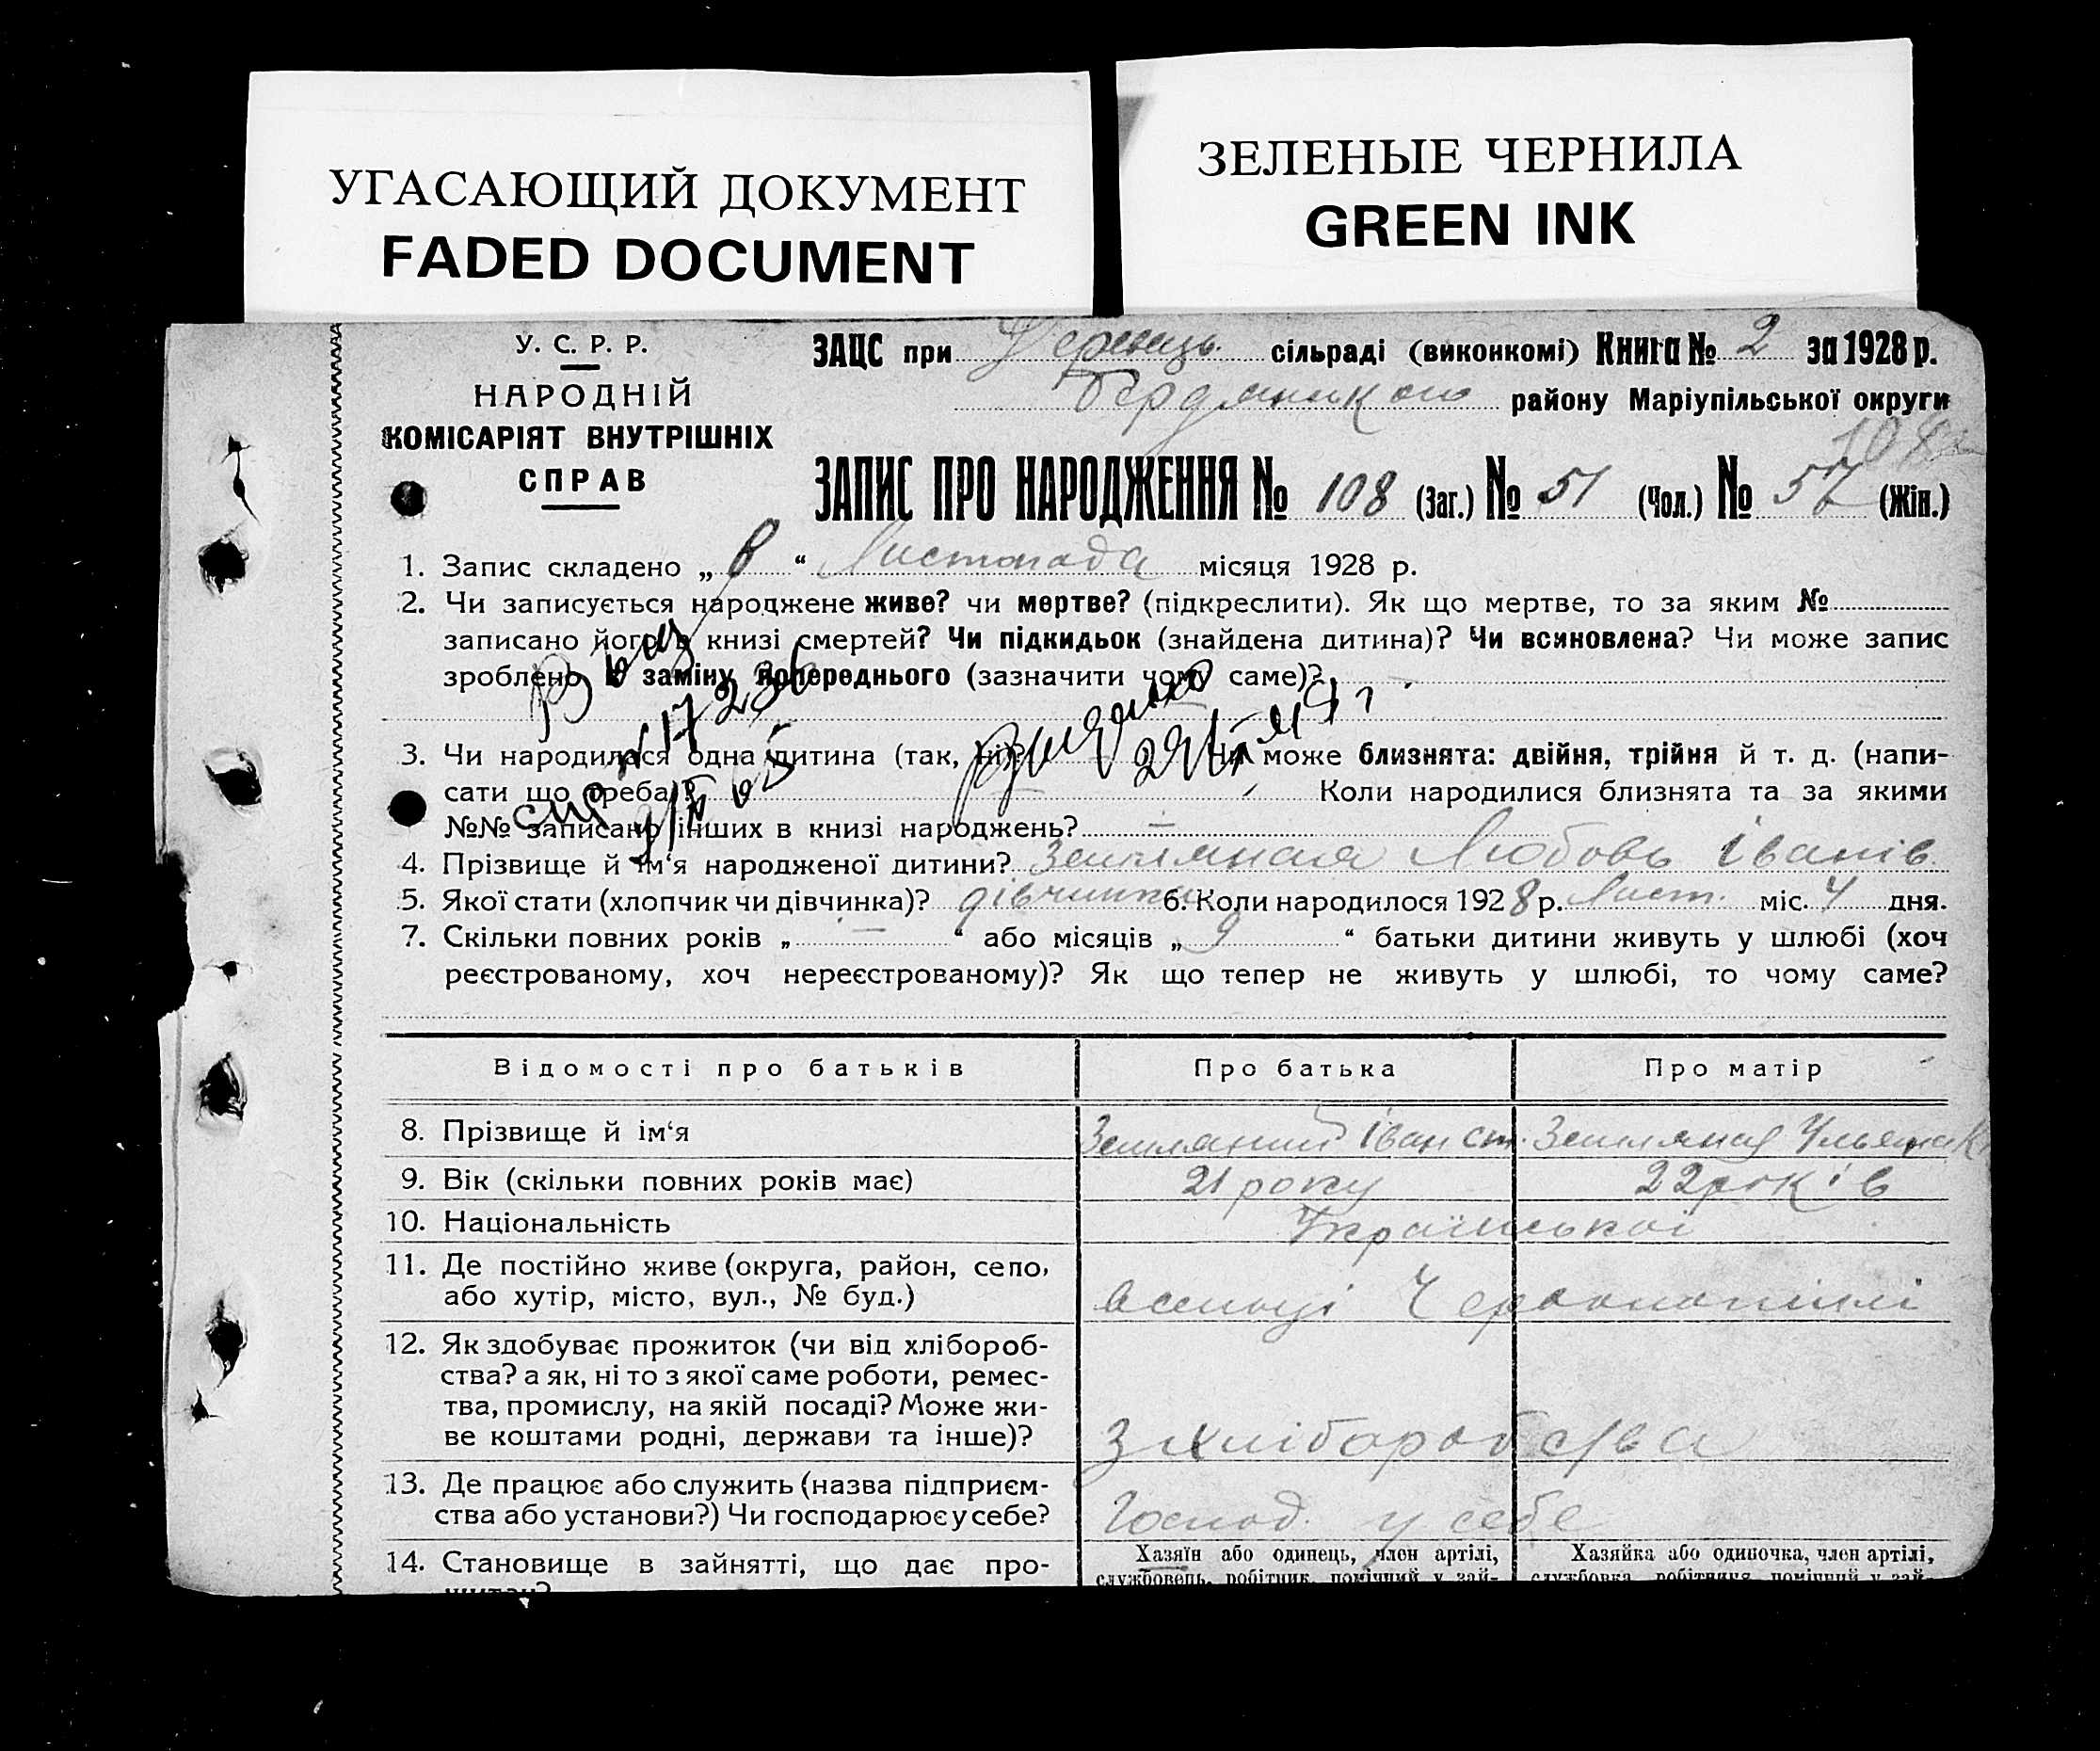 УГАСАЮЩИЙ ДОКУМЕНТ
FADED DOCUMENT
ЗЕЛЕНЫЕ ЧЕРНИЛА
GREEN INK
У. С. Р. Р.
НАРОДНІЙ
КОМІСАРІЯТ ВНУТРІШНІХ
СПРАВ
ЗАЦС при сільраді (виконкомі) Книга № 2 за 1928 р.
району Маріупільської округи
ЗАПИС ПРО НАРОДЖЕННЯ № 108 (Заг.) № 51 (Чол.) № 57 (Жін.)
1. Запис складено „ “ Листопада місяця 1928 р.
2. Чи записується народжене живе? чи мертве? (підкреслити). Як що мертве, то за яким №
записано його в книзі смертей? Чи підкидьок (знайдена дитина)? Чи всиновлена? Чи може запис
зроблено в заміну попереднього (зазначити чому саме)?
3. Чи народилася одна дитина (так, ні)? Чи може близнята: двійня, трійня й т. д. (напи-
сати що треба)? Коли народилися близнята та за якими
№№ записано інших в книзі народжень? —
4. Прізвище й ім‘я народженої дитини? Земляная Любовь Іванів.
5. Якої стати (хлопчик чи дівчинка)? дівчинка 6. Коли народилося 1928 р. Лист. міс. 4 дня.
7. Скільки повних років „ — “ або місяців „ 9 “ батьки дитини живуть у шлюбі (хоч
реєстрованому, хоч нереєстрованому)? Як що тепер не живуть у шлюбі, то чому саме?
Відомості про батьків Про батька Про матір
8. Прізвище й ім‘я Земляний Іван Ст. Земляная Ульяна
9. Вік (скільки повних років має) 21 року 22 років
10. Національність Української
11. Де постійно живе (округа, район, село,
або хутір, місто, вул., № буд.) в селищі
12. Як здобуває прожиток (чи від хлібороб-
ства? а як, ні то з якої саме роботи, ремес-
тва, промислу, на якій посаді? Може жи-
ве коштами родні, держави та інше)? З хліборобства
13. Де працює або служить (назва підприєм-
ства або установи?) Чи господарює у себе? Господ. у себе
14. Становище в зайнятті, що дає про-
Хазяїн або одинець, член артілі,
службовець, робітник, помічний у зай-
Хазяйка або одиночка, член артілі,
службовка, робітниця, помічний у зай-